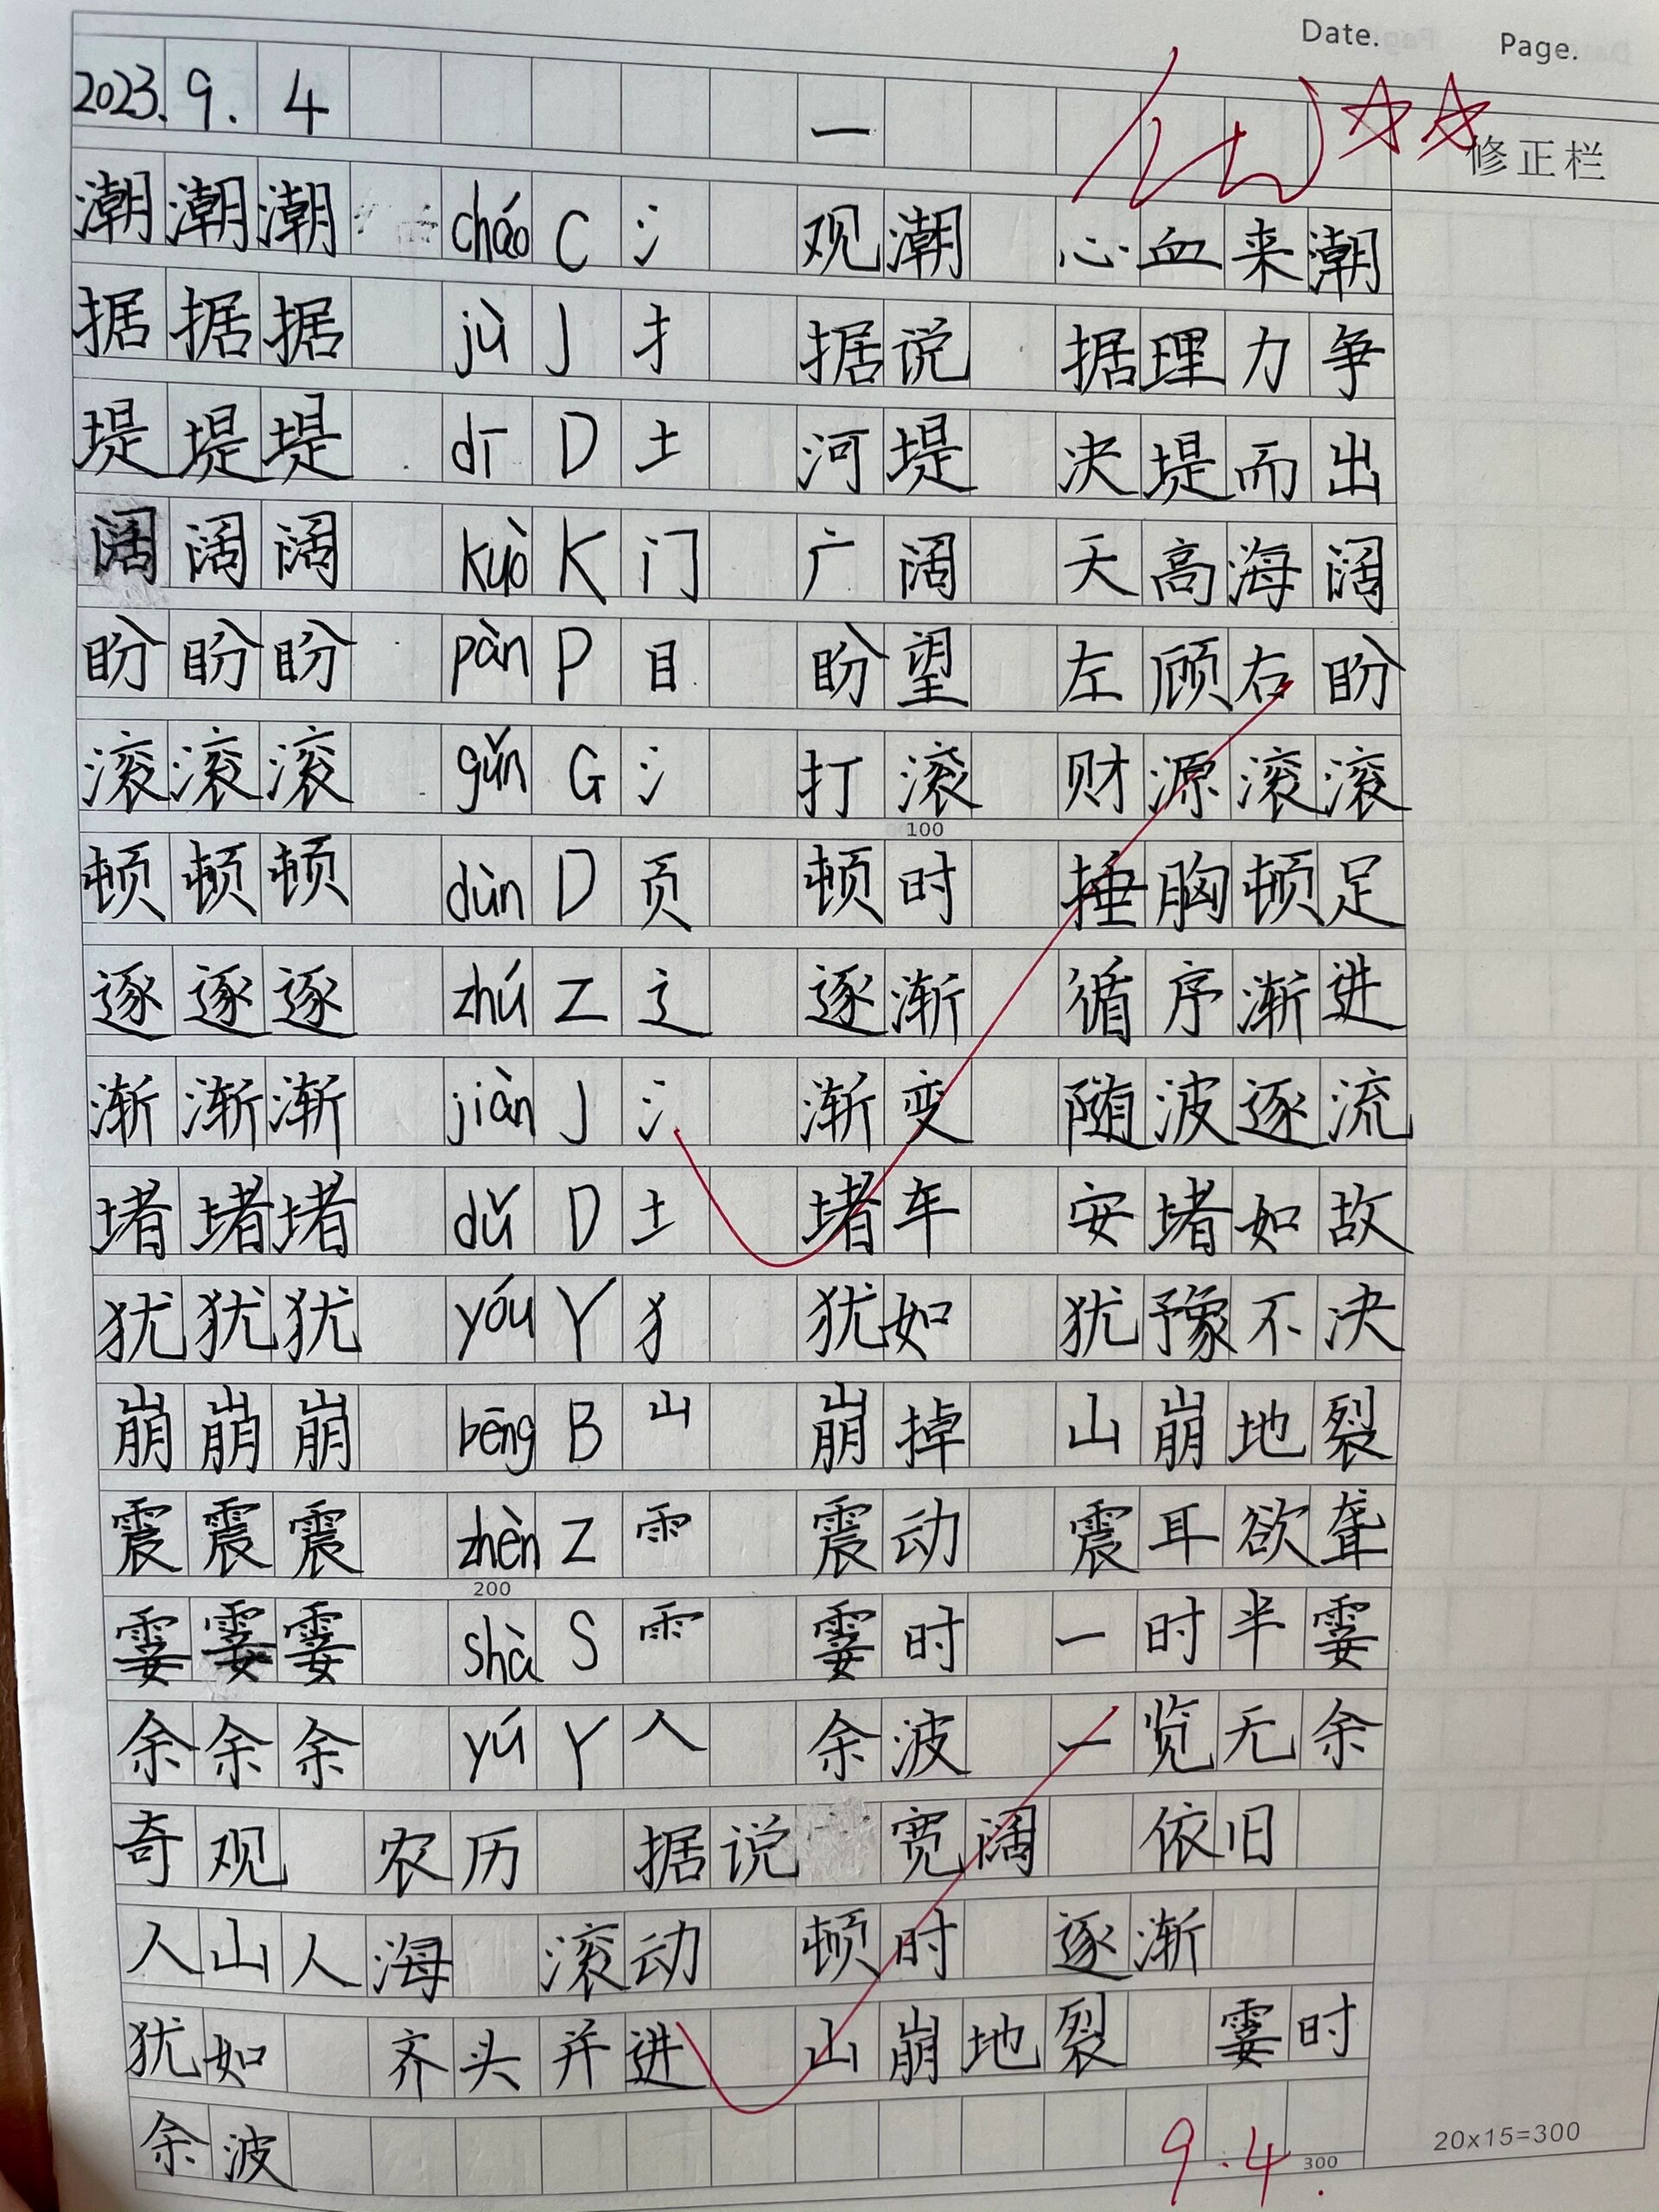 Date. Page.
2023.9.4 一 优☆☆
修正栏
潮潮潮 cháo C 氵 观潮 心血来潮
据据据 jù J 扌 据说 据理力争
堤堤堤 dī D 土 河堤 决堤而出
阔阔阔 kuò K 门 广阔 天高海阔
盼盼盼 pàn P 目 盼望 左顾右盼
滚滚滚 gǔn G 氵 打滚 财源滚滚
100
顿顿顿 dùn D 页 顿时 捶胸顿足
逐逐逐 zhú Z 辶 逐渐 循序渐进
渐渐渐 jiàn J 氵 渐变 随波逐流
堵堵堵 dǔ D 土 堵车 安堵如故
犹犹犹 yóu Y 犭 犹如 犹豫不决
崩崩崩 bēng B 山 崩掉 山崩地裂
震震震 zhèn Z 雨 震动 震耳欲聋
200
霎霎霎 shà S 雨 霎时 一时半霎
余余余 yú Y 人 余波 一览无余
奇观 农历 据说 宽阔 依旧
人山人海 滚动 顿时 逐渐
犹如 齐头并进 山崩地裂 霎时
余波
9.4.
300
20x15=300